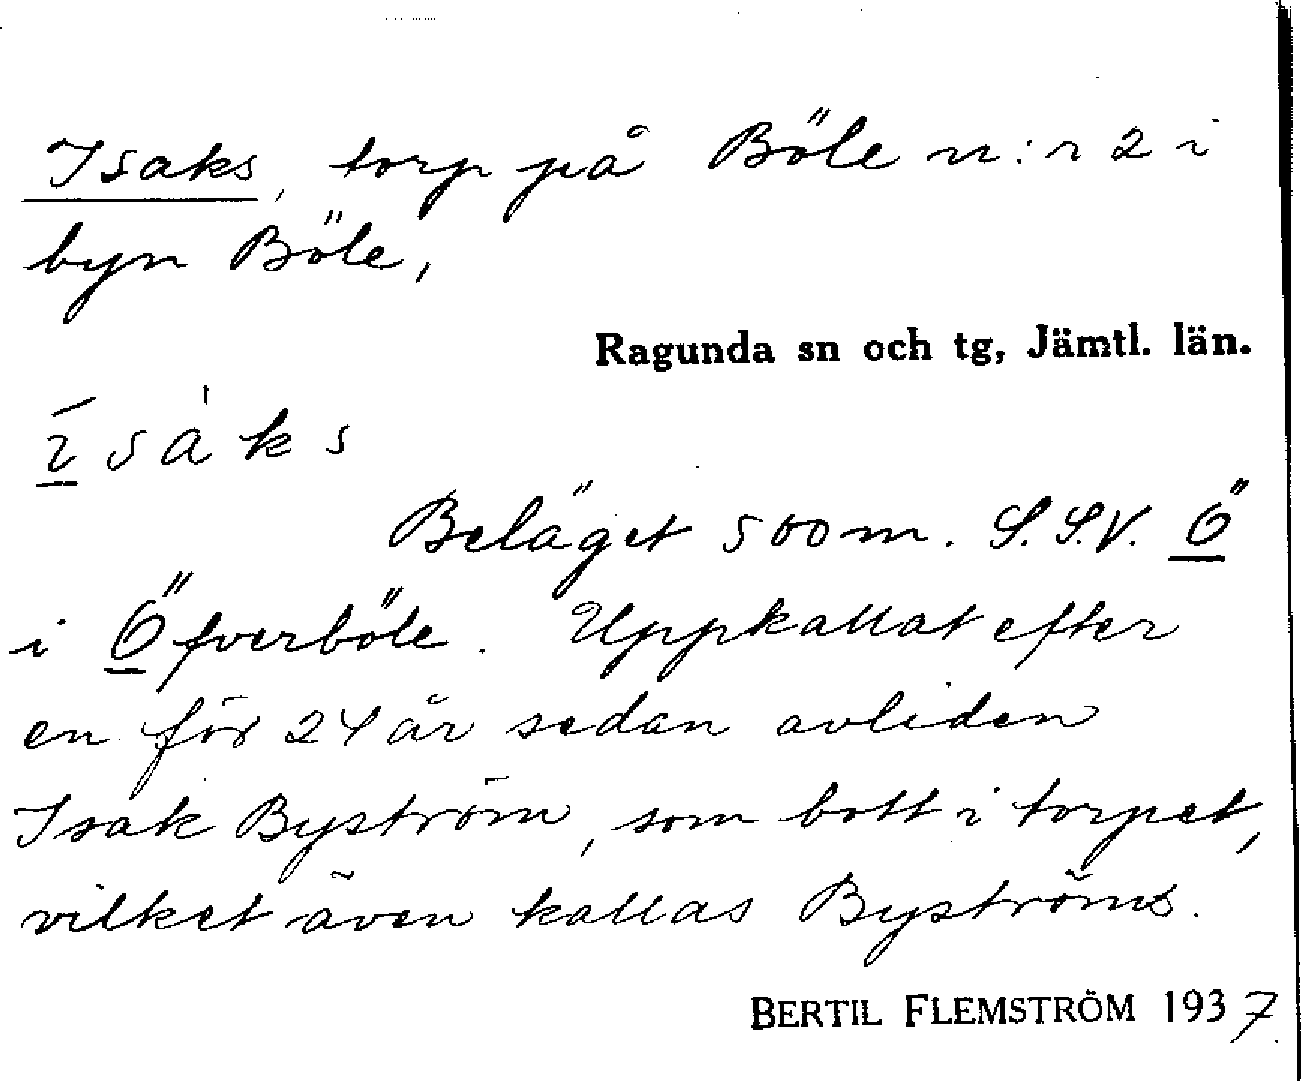 Isaks, torp på Böle n:r 2 i
byn Böle,
Ragunda sn och tg, Jämtl. län.
ī́sàks
Beläget 500 m. S.S.V. Ö
i Öfverböle. Uppkallat efter
en för 24 år sedan avliden
Isak Byström, som bott i torpet,
vilket även kallas Byströms.
BERTIL FLEMSTRÖM 1937